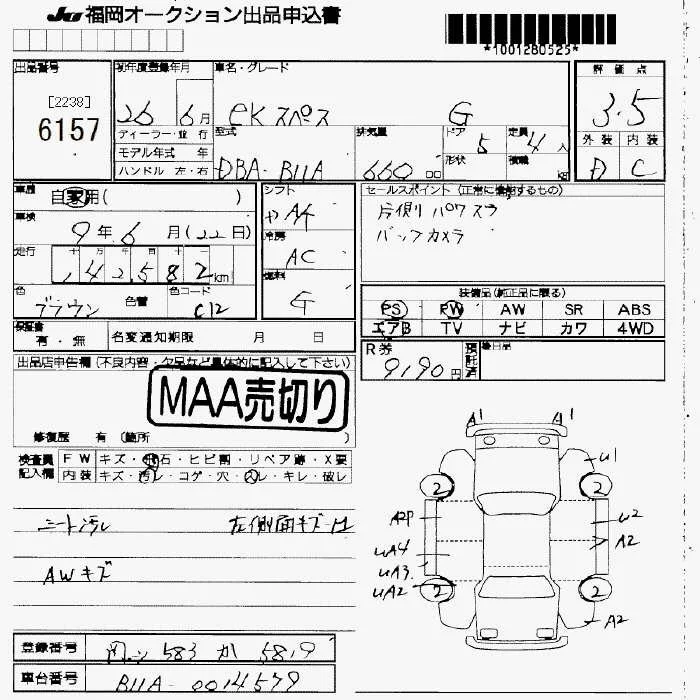 JU 福岡オークション出品申込書
*1001280525*
出品番号
[2238]
6157
初年度登録年月
26 6月
車名・グレード
eKスペース G
評価点
3.5
外装 内装
D C
ディーラー・並行
モデル年式 年
ハンドル 左・右
型式
DBA-B11A
排気量
660 cc
ドア
5
形状
定員
4人
積載
kg
車歴
自家用( )
車検
9年6月(22日)
走行
142,582km
色
ブラウン
色替
色コード
C12
シフト
A4
冷房
AC
燃料
G
セールスポイント(正常に機能するもの)
片側パワスラ
バックカメラ
装備品(純正品に限る)
PS PW AW SR ABS
エアB TV ナビ カワ 4WD
保証書
有・無
名変通知期限 月 日
R券
9190円
預託済
後日品
出品店申告欄(不良内容・欠品など具体的に記入して下さい)
MAA売切り
修復歴 有(箇所 )
検査員記入欄
FW キズ・飛石・ヒビ割・リペア跡・X要
内装 キズ・汚レ・コゲ・穴・凹レ・キレ・破レ
シート汚れ 左側面キズ
AWキズ
A1 A1
U1
2 2
A2P
U2
UA4
A2
UA3
UA2
2 2
A2
登録番号
583 か 5819
車台番号
B11A-0014579